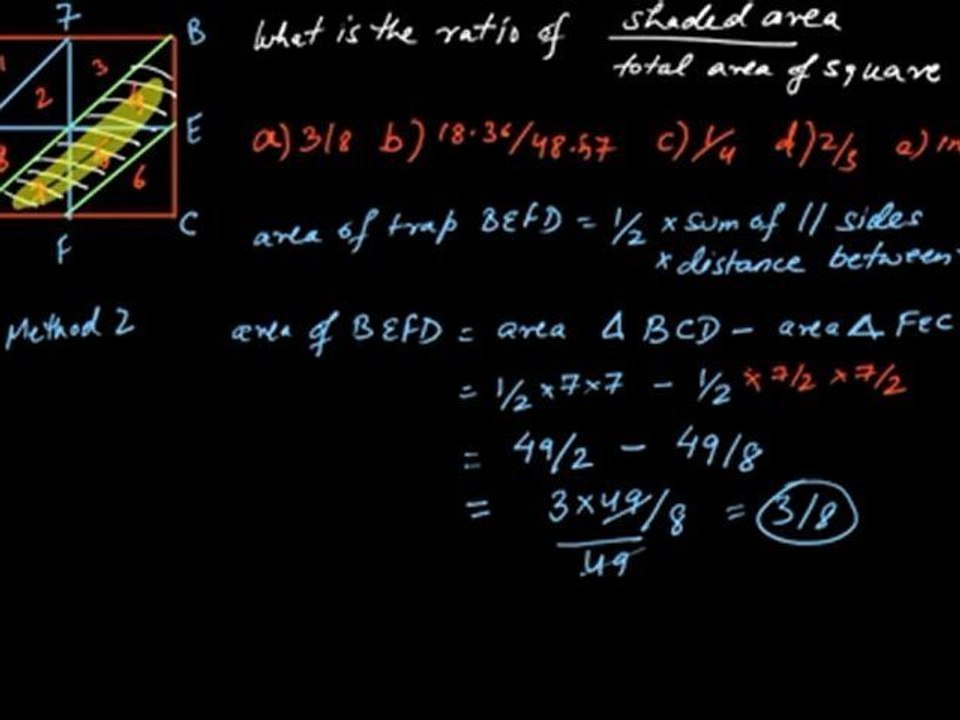 7
B
What is the ratio of shaded area
total area of square
1
2
3
4
E
a) 3/8 b) 18.36/48.57 c) 1/4 d) 2/5 e)
8
5
6
C
F
area of trap BEFD = 1/2 × sum of // sides
× distance between
Method 2
area of BEFD = area Δ BCD - area Δ FEC
= 1/2 × 7 × 7 - 1/2 × 7/2 × 7/2
= 49/2 - 49/8
= 3 × 49/8 = 3/8
49